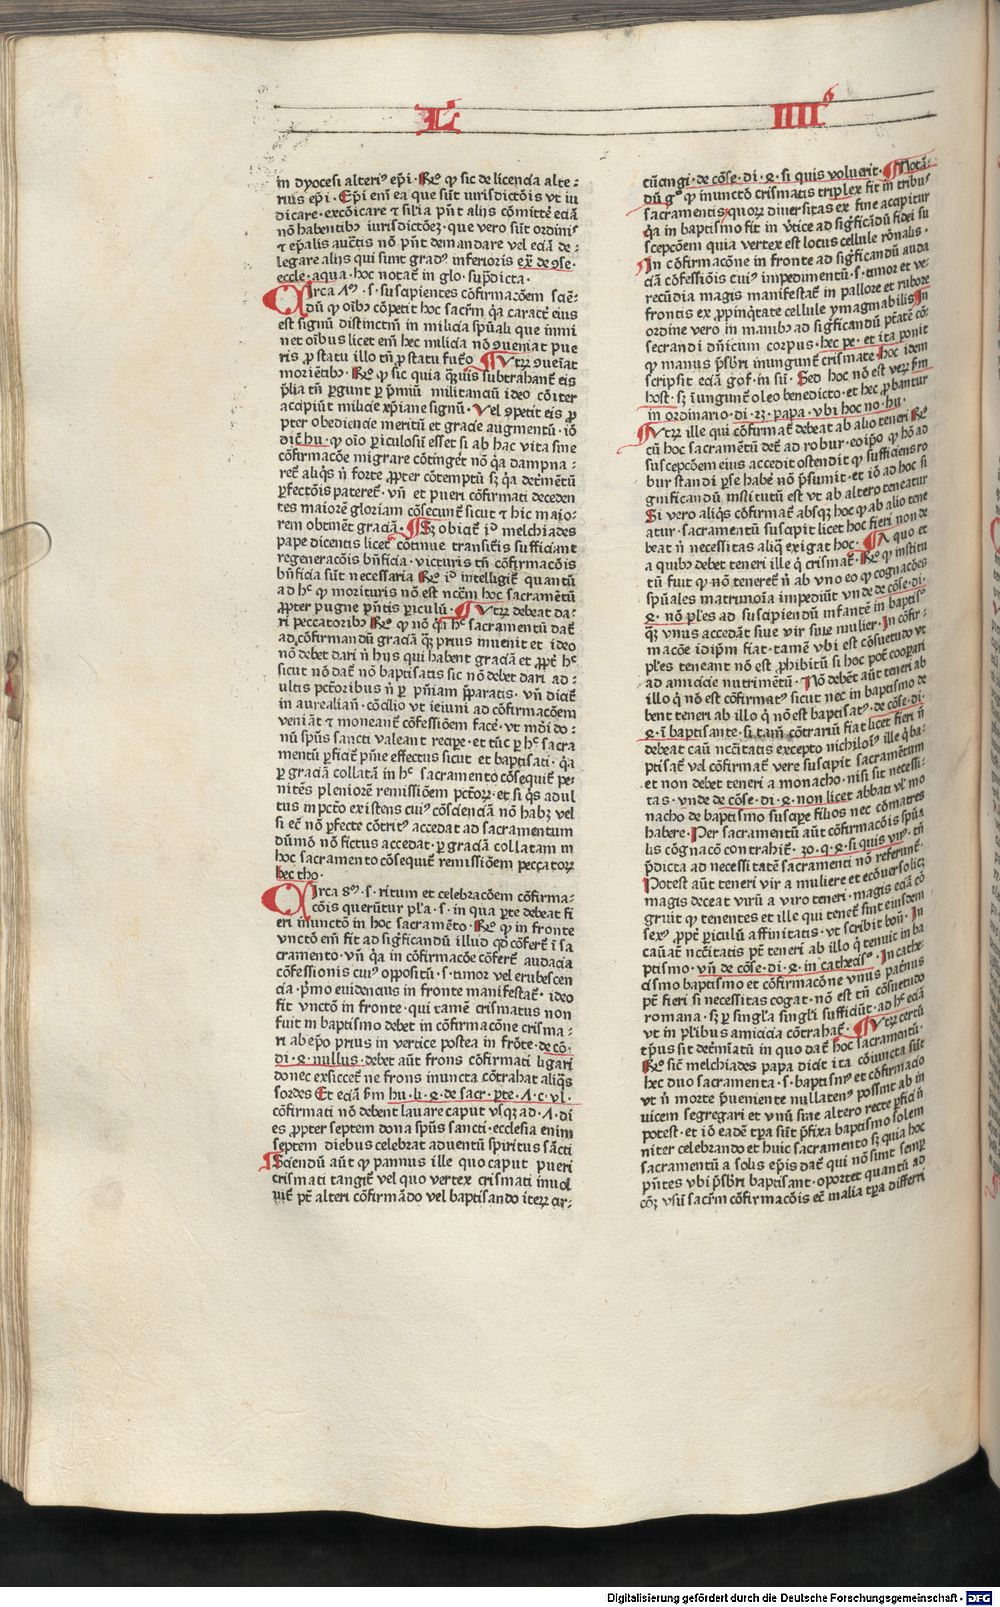 L IIII⁰
in dyocesi alteri⁹ ep̄i · R̄o qꝫ sic de licencia alte⸗
rius ep̄i · Ep̄i em̄ ea que sūt iurisdictōis vt iu
dicare · excōicare ⁊ similia pn̄t alijs cōmitte eciā
nō habentibꝫ iurisdictōeꝫ · que vero sūt ordinis
⁊ ep̄alis auctis nō pn̄t demandare vel eciā de⸗
legare alijs qui sunt grad⁹ inferioris ex̄ de ɔse ·
eccle · aqua · hoc notat in glo · sup̄dicta ·
Circa 7m̄ · s · suscipientes cōfirmacōem sciē⸗
dū qꝫ oībꝫ cōpetit hoc sacr̄m q̄a caractē eius
est signū distinctm̄ in milicia spūali que immi
net oībus licet em̄ hec milicia nō ɔueniat pue
ris ꝓ statu illo tn̄ ꝓ statu fut̄o ¶ Vtrꝝ ɔueīat
morientibꝫ · R̄o qꝫ sic quia quāuis subtrahant̄ eis
p̄lia tn̄ pergunt per p̄miū militanciū ideo cōiter
accipiūt milicie xp̄iane signū · Vel ɔpetit eis ꝓ
pter obediencie meritū et gracie augmentū · iō
dic̄t hu · qꝫ oīo periculosū esset si ab hac vita sine
cōfirmacōe migrare cōtinget nō q̄a dampna⸗
ret̄ aliqs n̄ forte ꝓpter cōtemptū sꝫ q̄a det̄mētū
perfectōis pateret̄ · vn̄ et pueri cōfirmati deceden
tes maiorē gloriam cōsecunt̄ sicut ⁊ hic maio⸗
rem obtinēt graciā · ¶ Sꝫ obicit̄ id melchiades
pape dicentis licet cōtinue transit̄is sufficiant
regeneracōis bn̄ficia · victuris tn̄ cōfirmacōis
bn̄ficia sūt necessaria R̄o id intelligit̄ quantū
ad hc̄ qꝫ morituris nō est nccm̄ hoc sacramētū
ꝓpter pugne pn̄tis periculū · ¶ Vtrꝝ debeat da⸗
ri peccatoribꝫ R̄o qꝫ nō q̄a hc̄ sacramentū dat̄
ad cōfirmandū graciā q̄ꝫ prius inuenit et ideo
nō debet dari n̄ hijs qui habent graciā et ꝓpt̄ hc̄
sicut nō dat̄ nō baptisatis sic nō debet dari ad⸗
ultis pctōribus n̄ per pn̄iam p̄paratis · vn̄ dicit̄
in aurelian̄ · cōcilio vt ieiuni ad cōfirmacōem
veniāt ⁊ moneant̄ cōfessiōem face · vt mūdi do⸗
nū spūs sancti valeant recipe · et tūc per hc̄ sacra
mentū perficit̄ pn̄ie effectus sicut et baptisati · q̄a
per graciā collatā in hc̄ sacramento cōsequit̄ pe
nitēs pleniorē remissiōem pctōrꝝ · et si q̄s adul
tus in pctō existens cui⁹ cōscienciā nō habꝫ vel
si ec̄ nō perfecte cōtrit⁹ accedat ad sacramentum
dūmō nō fictus accedat · per graciā collatam in
hoc sacramento cōsequit̄ remissiōem peccatorꝝ
hec tho ·
Circa 8m̄ · s · ritum et celebracōem cōfirma⸗
cōis querūtur pl̄a · s · in qua pte debeat fi
eri inunctō in hoc sacramēto · R̄o qꝫ in fronte
vnctō em̄ fit ad sigficandū illud qd̄ cōfert̄ ī sa
cramento · vn̄ q̄a in cōfirmacōe cōfert̄ audacia
cōfessionis cui⁹ oppositū · s · timor vel erubescen
cia · p̄mo euidencius in fronte manifestat̄ · ideo
fit vnctō in fronte · qui tamē crismatus non
fuit in baptismo debet in cōfirmacōne crisma⸗
ri ab ep̄o prius in vertice postea in frōte · de cō ·
di · 4 · nullus · debet aūt frons cōfirmati ligari
donec exsiccet̄ ne frons inuncta cōtrahat aliq̄s
sordes Et eciā scd̄m hu · li · 4 · de sacr · pte · 7 · c · vl ·
cōfirmati nō debent lauare caput vsqꝫ ad · 7 · di
es ꝓpter septem dona spūs sancti · ecclesia enim
septem diebus celebrat aduentū spiritus sācti
¶ Sciendū aūt qꝫ pannus ille quo caput pueri
crismati tangit̄ vel quo vertex crismati inuol
uit̄ pt̄ alteri cōfirmādo vel baptisando iterꝝ cir⸗
cūcingi · de cōse · di · 4 · si quis voluerit · ¶ Notā⸗
dū gͦ qꝫ inunctō crismatis triplex fit in tribus
sacramentis quorꝝ diuersitas ex fine accipitur
q̄a in baptismo fit in v̄tice ad sigficādū fidei su
scepcōem quia vertex est locus cellule rōnalis ·
In cōfirmacōne in fronte ad sigficandū auda
ciā cōfessiōis cui⁹ impedimentū · s · timor et ve⸗
recūdia magis manifestat̄ in pallore et rubore
frontis ex ꝓpinqtate cellule ymaginabilis In
ordine vero in manibꝫ ad sigficandū ptatē cō⸗
secrandi dn̄icum corpus · hec pe · et ita ponit
qꝫ manus p̄sbri inungunt̄ crismate · hoc idem
scripsit eciā gof · in sū · Sed hoc nō est verꝝ scd̄m
host · sꝫ inungunt̄ oleo benedicto · et hec ꝓbantur
in ordinario · di · 23 · papa · vbi hoc no · hu ·
¶ Vtrꝝ ille qui cōfirmat̄ debeat ab alio teneri R̄o
cū hoc sacramētū det̄ ad robur · eo ip̄o qꝫ hō ad
suscepcōem eius accedit ostendit qꝫ sufficiens ro
bur standi p se habē nō p̄sumit · et iō ad hoc si
gnificandū institutū est vt ab altero teneatur
Si vero aliqs cōfirmat̄ absqꝫ hoc qꝫ ab alio tene
atur · sacramentū suscipit licet hoc fieri non de
beat n̄ necessitas aliq̄ exigat hoc · ¶ A quo et
a quibꝫ debet teneri ille q̄ crismat̄ · R̄o qꝫ institu
tū fuit qꝫ nō teneret̄ n̄ ab vno eo qꝫ cognacōes
spūales matrimoīa impediūt vn̄ de cōse · di ·
4 · nō pl̄es ad suscipiendū infantē in baptis⁹
q̄ꝫ vnus accedāt siue vir siue mulier · In cōfir⸗
macōe idip̄m fiat · tamē vbi est cōsuetudo vt
pl̄es teneant nō est ꝓhibitū si hoc pot̄ cooperari
ad amicicie nutrimētū · Nō debēt aūt teneri ab
illo q̄ nō est cōfirmat⁹ sicut nec in baptismo de
bent teneri ab illo q̄ nō est baptisat⁹ · de cōse · di ·
4 · ī baptisante · si tam̄ cōtrariū fiat licet fieri n̄
debeat caū nccitatis excepto nichilom̄ ille q̄ ba⸗
ptisat̄ vel cōfirmat̄ vere suscipit sacramētum
et non debet teneri a monacho · nisi sit necessi⸗
tas · vnde de cōse · di · 4 · non licet abbati vl̄ mo
nacho de baptismo suscipe filios nec cōmatres
habere · Per sacramentū aūt cōfirmacōis spūa
lis cōgnacō contrahit̄ · 30 · q · 4 · si quis vn⁹ · tn̄
p̄dicta ad necessitatē sacramenti nō referunt̄ ·
Potest aūt teneri vir a muliere et ecōuerso licꝫ
magis deceat virū a viro teneri · magis eciā cō
gruit qꝫ tenentes et ille qui tenet̄ sint eiusdem
sex⁹ ꝓpt̄ periculū affinitatis · vt scribit bon̄ · In
caū at̄ nccitatis pt̄ teneri ab illo q̄ tenuit in ba
ptismo · vn̄ de cōse · di · 4 · in catheciso · In cathe⸗
cismo baptismo et cōfirmacōne vnus patrinus
pt̄ fieri si necessitas cogat · nō est tn̄ cōsuetudo
romana · sꝫ per singl̄a singl̄i sufficiūt · ad hc̄ eciā
vt in pl̄ibus amicicia cōtrahat̄ · ¶ Vtrꝝ certū
tp̄us sit det̄miatū in quo dat̄ hoc sacramentū ·
R̄o sicut̄ melchiades papa dicit ita cōiuncta sūt
hec duo sacramenta · s · baptism⁹ et cōfirmacio
vt n̄ morte p̄ueniente nullaten⁹ possint ab in
uicem segregari et vnū sine altero recte perfici n̄
potest · et iō eadē tp̄ra sūt p̄fixa baptismo solem
niter celebrando et huic sacramento sꝫ quia hoc
sacramentū a solis ep̄is dat̄ qui nō sunt semp
pn̄tes vbi p̄sbri baptisant · oportet quantū ad
cōꝫ vsū sacr̄m cōfirmacōis ec̄ in alia tp̄ra differri
Digitalisierung gefördert durch die Deutsche Forschungsgemeinschaft - DFG